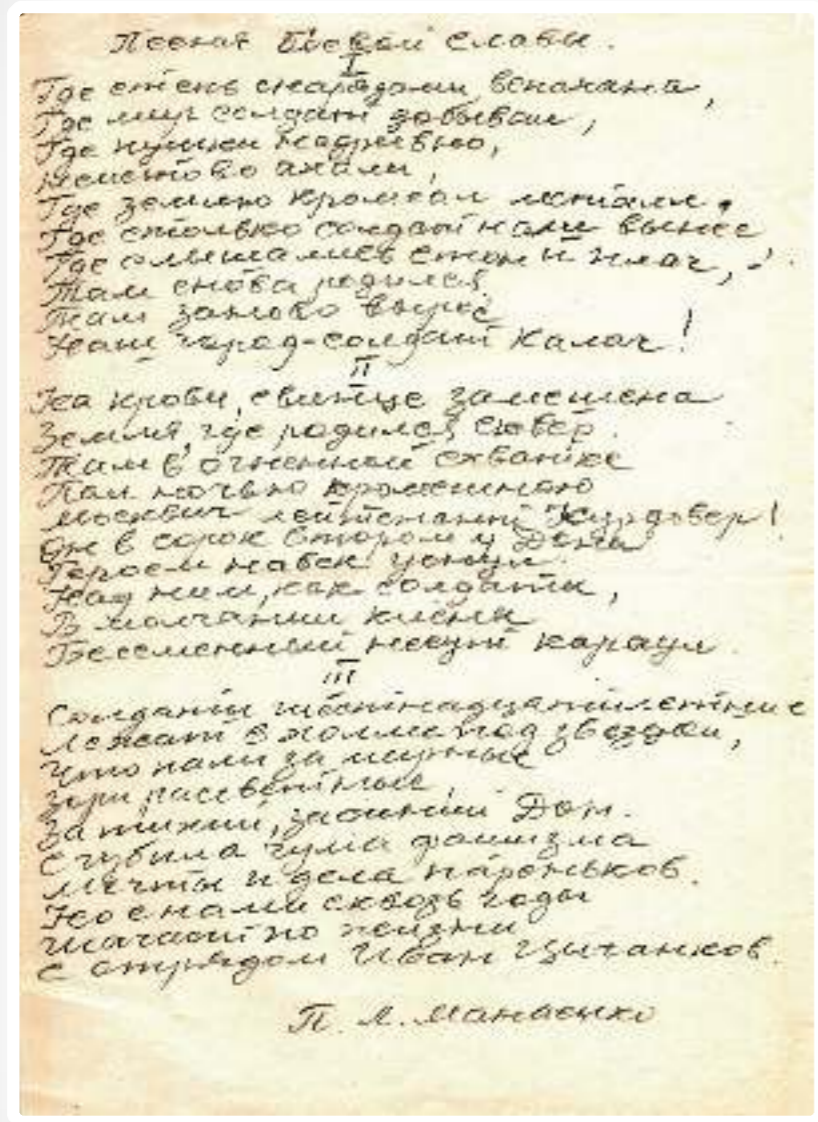 Песня боевой славы.
I
Где степь снарядами вспахана,
Где мир солдат добывал,
Где пушки надрывно,
неистово ахали,
Где землю кромсал металл.
Где столько солдат нами вынес
Где слышались стон и плач,
Там снова родился,
Там заново вырос
Наш город-солдат Калач!
II
На крови, свинце замешена
Земля, где родился
Там в огненной схватке
Пал ночью кромешною
Москвич лейтенант Журдовер!
Он в сорок втором у Дона
Героем навек уснул.
Над ним, как солдаты,
В молчании клены
Бессменный несут караул.
III
Солдаты шестнадцатилетние
Лежат в холме под звездой,
Что пали за мирные
зори рассветные,
За тихий, Дон.
Сгубила чума фашизма
Мечты и дела пареньков.
Но с нами сквозь годы
шагает по жизни
С отрядом Иван Цыганков.
П. Л.